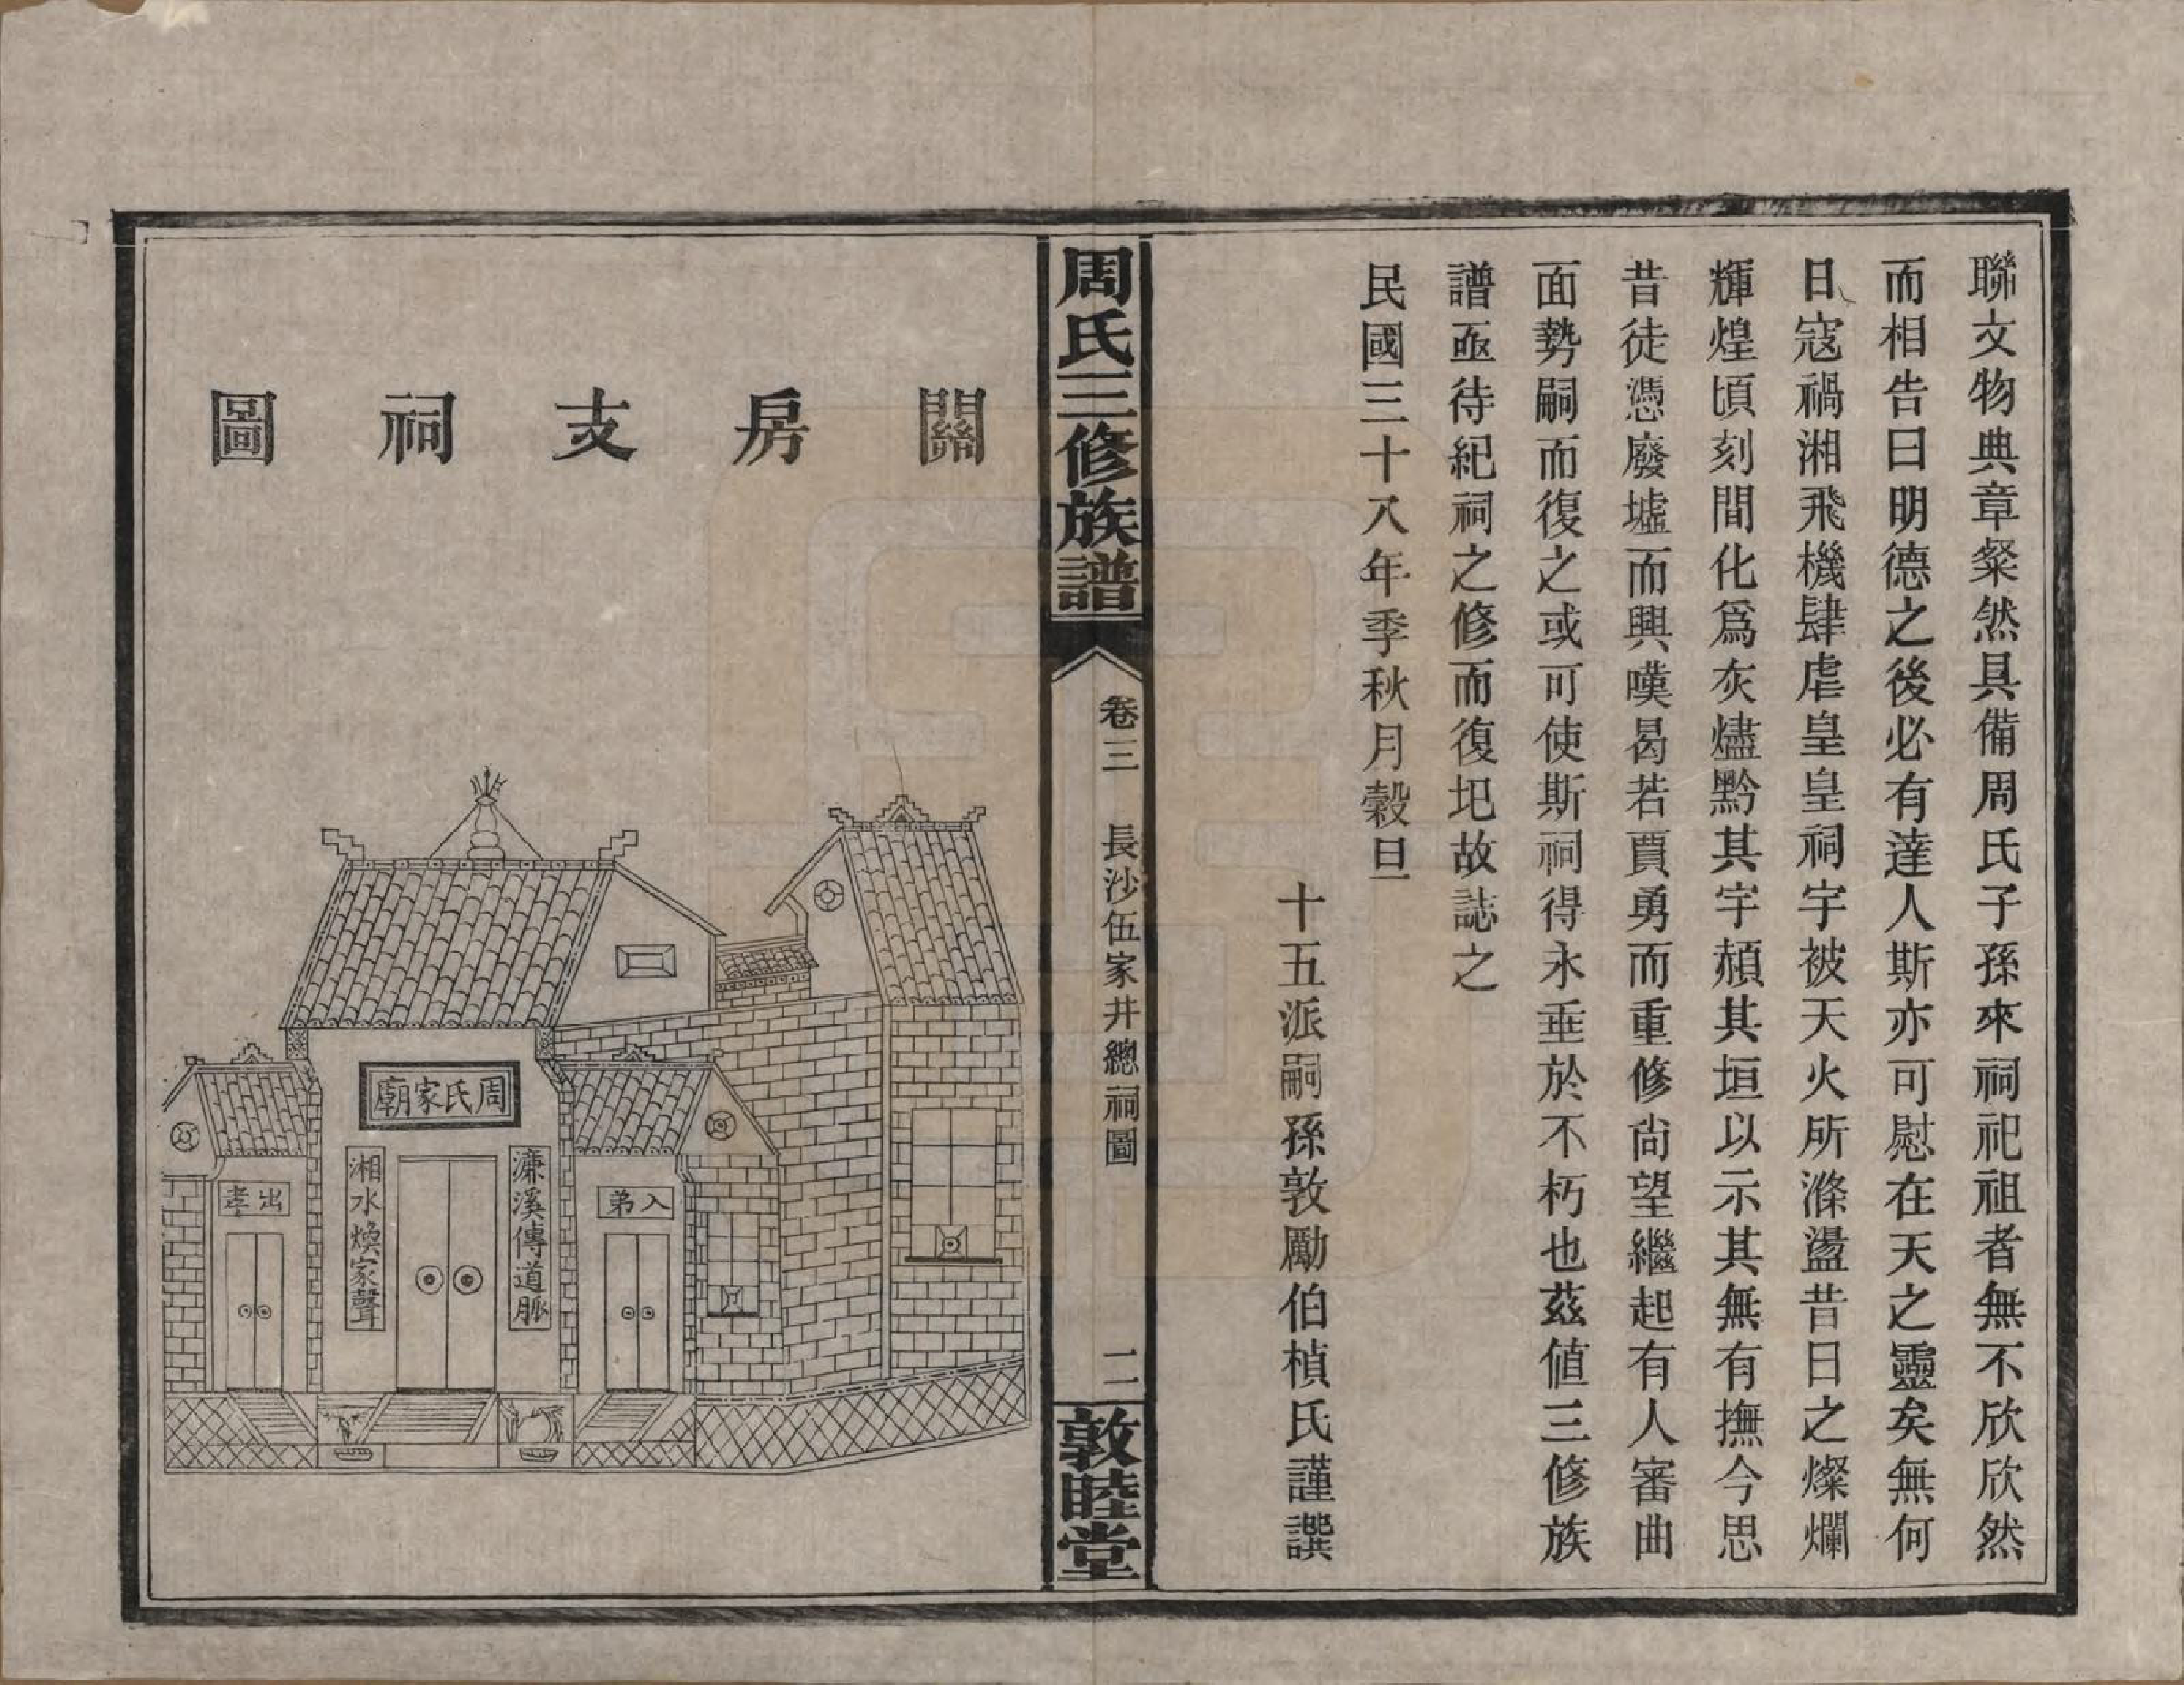 聯文物典章粲然具備周氏子孫來祠祀祖者無不欣欣然
而相告曰明德之後必有達人斯亦可慰在天之靈矣無何
日寇禍湘飛機肆虐皇皇祠宇被天火所滌盪昔日之燦爛
輝煌頃刻間化爲灰燼黔其宇赬其垣以示其無有撫今思
昔徒憑廢墟而興嘆曷若賈勇而重修尙望繼起有人審曲
面勢嗣而復之或可使斯祠得永垂於不朽也茲值三修族
譜亟待紀祠之修而復圯故誌之
民國三十八年季秋月穀旦
十五派嗣孫敦勵伯楨氏謹譔
周氏三修族譜
卷三 長沙伍家井總祠圖
二
敦睦堂
關房支祠圖
周氏家廟
濂溪傳道脈
湘水煥家聲
入弟
出孝